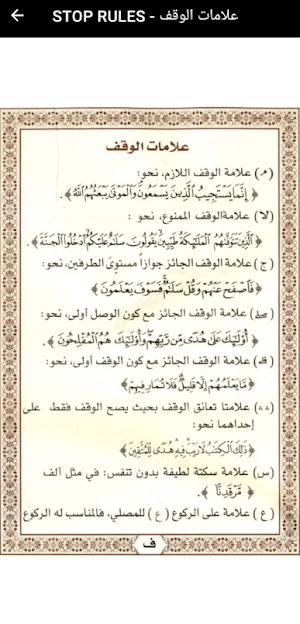 STOP RULES - علامات الوقف
علامات الوقف
(م) علامة الوقف اللازم، نحو:
﴿ إِنَّمَا يَسْتَجِيبُ الَّذِينَ يَسْمَعُونَ وَالْمَوْتَى يَبْعَثُهُمُ اللَّهُ ﴾ .
(لا) علامة الوقف الممنوع، نحو :
﴿ الَّذِينَ تَتَوَفَّاهُمُ الْمَلَائِكَةُ طَيِّبِينَ يَقُولُونَ سَلَامٌ عَلَيْكُمُ ادْخُلُوا الْجَنَّةَ ﴾ .
(ج) علامة الوقف الجائز جوازاً مستوي الطرفين، نحو:
﴿ فَاصْفَحْ عَنْهُمْ وَقُلْ سَلَامٌ فَسَوْفَ يَعْلَمُونَ ﴾
(صلى) علامة الوقف الجائز مع كون الوصل أولى، نحو:
﴿ أُولَئِكَ عَلَى هُدًى مِنْ رَبِّهِمْ وَأُولَئِكَ هُمُ الْمُفْلِحُونَ ﴾ .
(قلى) علامة الوقف الجائز مع كون الوقف أولى، نحو:
﴿ مَا يَعْلَمُهُمْ إِلَّا قَلِيلٌ فَلَا تُمَارِ فِيهِمْ ﴾
(∴ ∴) علامتا تعانق الوقف بحيث يصح الوقف فقط على
إحداهما نحو:
﴿ ذَلِكَ الْكِتَابُ لَا رَيْبَ فِيهِ هُدًى لِلْمُتَّقِينَ ﴾
(س) علامة سكتة لطيفة بدون تنفس: في مثل ألف
﴿ مَرْقَدِنَا ﴾ .
(ع) علامة على الركوع (ع) للمصلي، فالمناسب له الركوع
ف